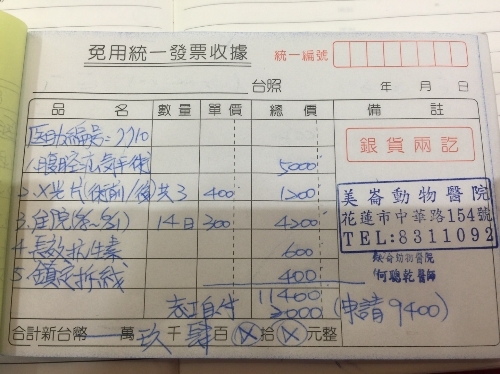 免用統一發票收據
統一編號
台照 年 月 日
品 名 數量 單價 總價 備註
醫助編號:2210
1.腹腔疝氣手術 5000
銀貨兩訖
2.X光片(術前/後)共3 400 1200
3.住院 14日 300 4200
4.長效抗生素 600
5.鎮定拆線 400
美崙動物醫院
花蓮市中華路154號
TEL:8311092
美崙動物醫院
何聰乾醫師
11400
志工自付 2000 (申請9400)
合計新台幣 萬 玖 千 肆 百 拾 元整